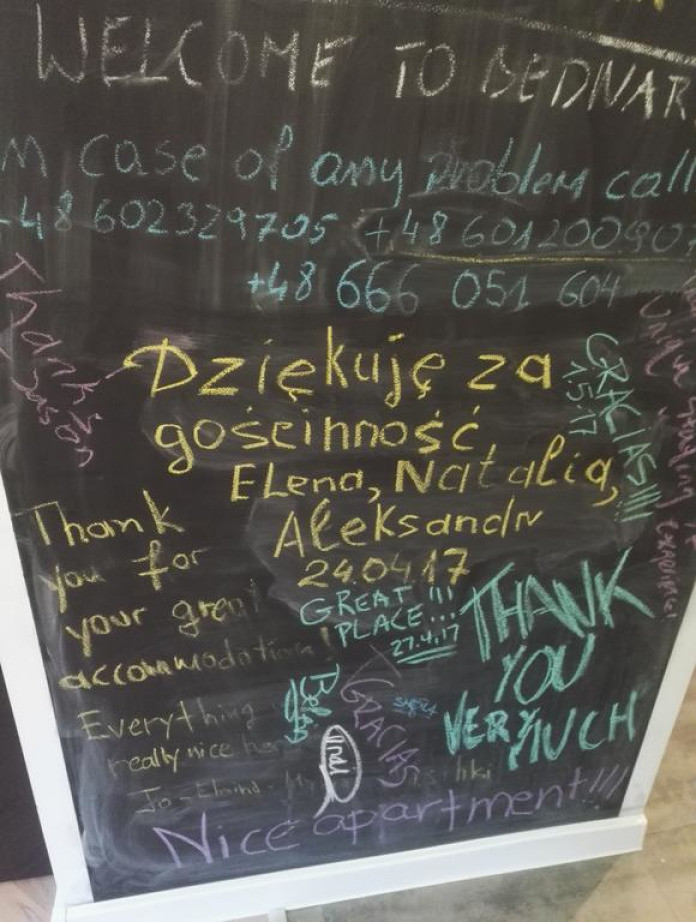 WELCOME TO BEDNAR
case of any problem call
+48 602329705 +48 601200905
+48 666 051 604
Dziękuję za
gościnność
Elena, Natalia,
Aleksandr
24.04.17
GRACIAS!!!
1.5.17
Thank
you for
your great
accommodation!
GREAT !!!
PLACE...
27.4.17
THANK
YOU
VERY MUCH
Everything
really nice her
GRACIAS
Nice apartment!!!